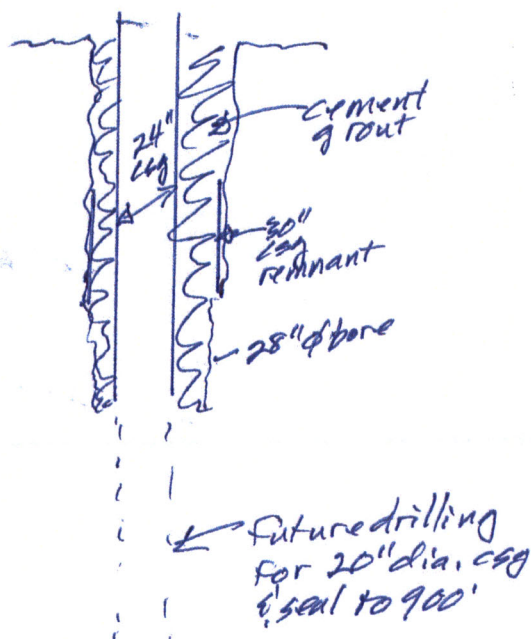 24"
csg
cement
grout
30"
csg
remnant
28" ϕ bore
future drilling
for 20" dia. csg
& seal to 900'